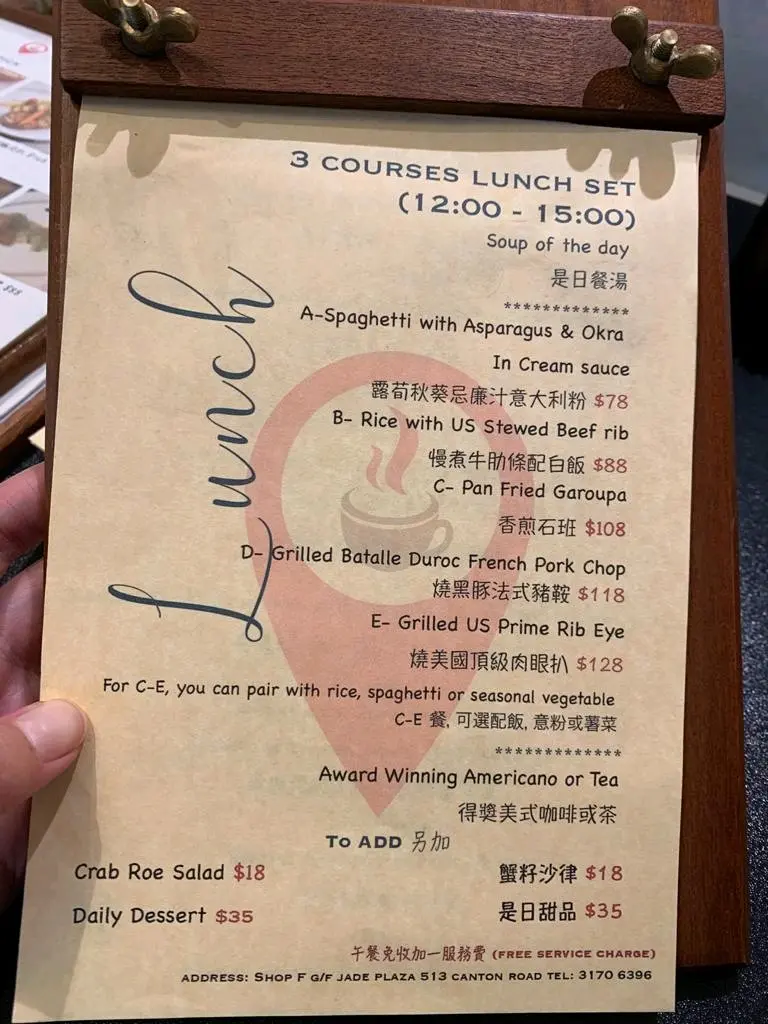 3 COURSES LUNCH SET
(12:00 - 15:00)
Soup of the day
是日餐湯
*************
Lunch
A-Spaghetti with Asparagus & Okra
In Cream sauce
露荀秋葵忌廉汁意大利粉 $78
B- Rice with US Stewed Beef rib
慢煮牛肋條配白飯 $88
C- Pan Fried Garoupa
香煎石班 $108
D- Grilled Batalle Duroc French Pork Chop
燒黑豚法式豬鞍 $118
E- Grilled US Prime Rib Eye
燒美國頂級肉眼扒 $128
For C-E, you can pair with rice, spaghetti or seasonal vegetable
C-E 餐, 可選配飯, 意粉或薯菜
*************
Award Winning Americano or Tea
得獎美式咖啡或茶
To ADD 另加
Crab Roe Salad $18 蟹籽沙律 $18
Daily Dessert $35 是日甜品 $35
午餐免收加一服務費 (FREE SERVICE CHARGE)
ADDRESS: SHOP F G/F JADE PLAZA 513 CANTON ROAD TEL: 3170 6396